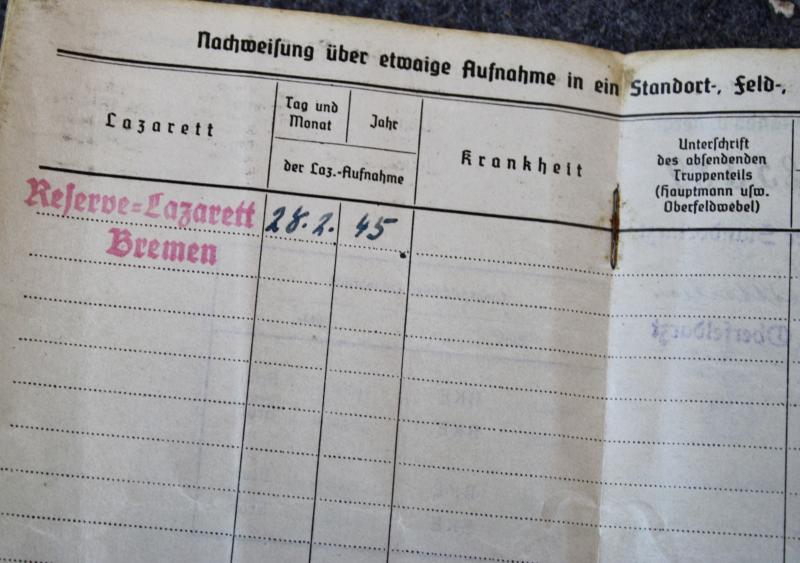 Nachweisung über etwaige Aufnahme in ein Standort-, Feld-,
Lazarett
Tag und
Monat
Jahr
der Laz.-Aufnahme
Krankheit
Unterschrift
des absendenden
Truppenteils
(Hauptmann usw.
Oberfeldwebel)
Reserve=Lazarett
Bremen
28. 2. 45.